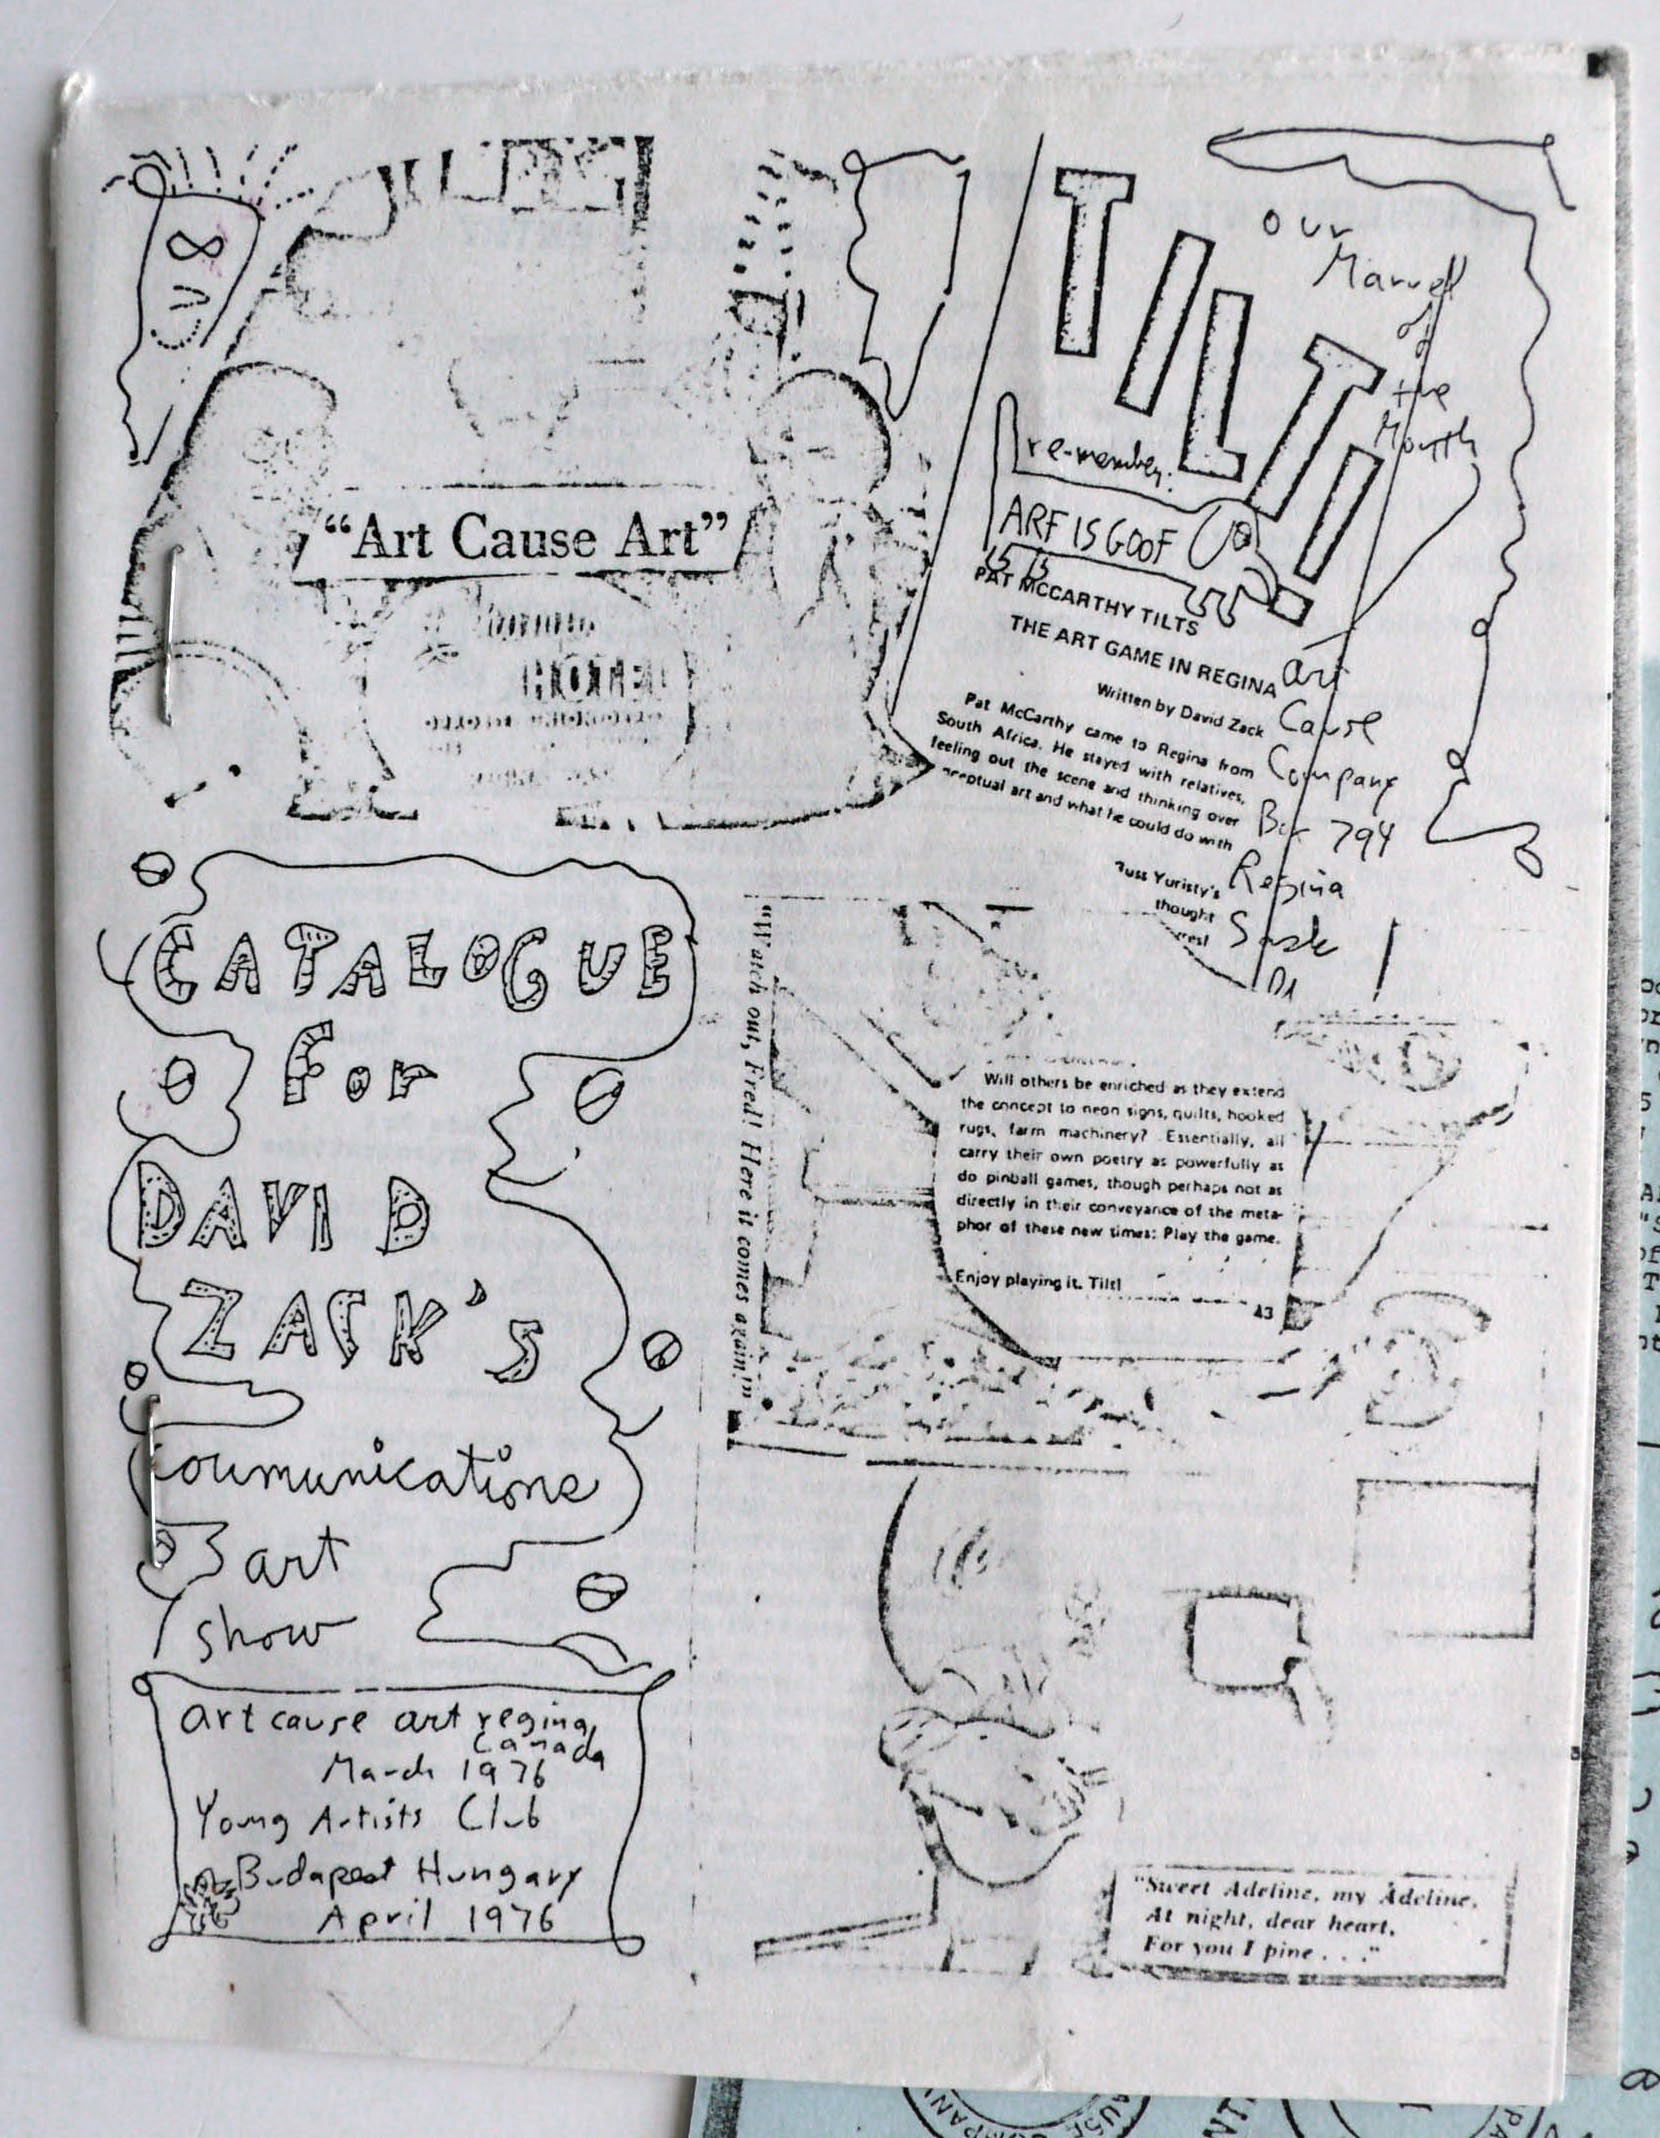 "Art Cause Art"
HOTEL
TILT!
our
Marvel
of
the
Month
re-member:
ARF IS GOOF
PAT MCCARTHY TILTS
THE ART GAME IN REGINA
Written by David Zack
Pat McCarthy came to Regina from
South Africa. He stayed with relatives,
feeling out the scene and thinking over
ceptual art and what he could do with
Russ Yuristy's
thought
rest
Art
Cause
Company
Box 794
Regina
Sask
CATALOGUE
For
DAVID
ZACK'S
Communications
art
show
art cause art regina,
Canada
March 1976
Young Artists Club
Budapest Hungary
April 1976
"Watch out, Fred! Here it comes again!"
Will others be enriched as they extend
the concept to neon signs, quilts, hooked
rugs, farm machinery? Essentially, all
carry their own poetry as powerfully as
do pinball games, though perhaps not as
directly in their conveyance of the meta-
phor of these new times: Play the game.
Enjoy playing it. Tilt!
43
"Sweet Adeline, my Adeline,
At night, dear heart,
For you I pine . . ."